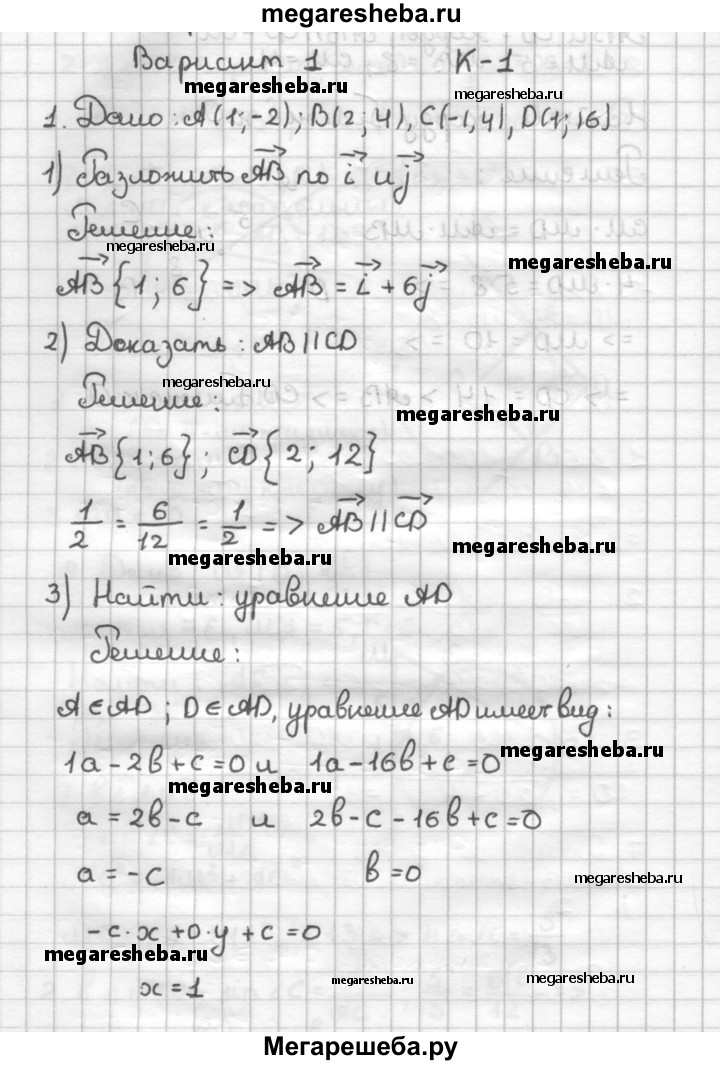 megaresheba.ru
Вариант 1 К-1
megaresheba.ru
megaresheba.ru
1. Дано: A(1;-2); B(2; 4), C(-1,4), D(1; 16)
1) Разложить AB по i и j
Решение:
megaresheba.ru
megaresheba.ru
AB {1; 6} => AB = i + 6j
2) Доказать: AB || CD
megaresheba.ru
Решение:
megaresheba.ru
AB {1;6}; CD {2; 12}
1/2 = 6/12 = 1/2 => AB || CD
megaresheba.ru
megaresheba.ru
3) Найти: уравнение AD
Решение:
A ∈ AD; D ∈ AD, уравнение AD имеет вид:
1a - 2b + c = 0 и 1a - 16b + c = 0
megaresheba.ru
megaresheba.ru
a = 2b - c и 2b - c - 16b + c = 0
a = - c b = 0
megaresheba.ru
-c · x + 0 · y + c = 0
megaresheba.ru
x = 1
megaresheba.ru
megaresheba.ru
Мегарешеба.ру